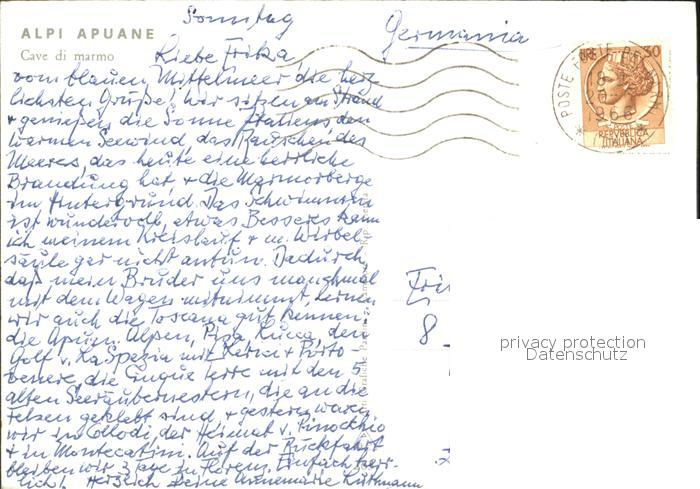 Sonntag
Germania
ALPI APUANE
Cave di marmo
Liebe Fritza
vom blauen Mittelmeer die herz
lichsten Grüße, wir sitzen am Strand
+ genießen die Sonne Italiens, den
warmen Seewind, das Rauschen des
Meeres, das heute eine herrliche
Brandung hat + die Marmorberge
im Hintergrund. Das Schwimmen
ist wundervoll, etwas Besseres kann
ich meinem Kreislauf + m. Wirbel
säule gar nicht antun. Dadurch,
daß mein Bruder uns manchmal
mit dem Wagen mitnimmt, lernen
wir auch die Toscana gut kennen,
die Apuan. Alpen, Pisa, Lucca, den
Golf v. La Spezia mit Lerici + Porto
venere, die Cinque terre mit den 5
alten Seeräubernestern, die an die
Felsen geklebt sind, + gestern waren
wir in Collodi, der Heimat v. Pinocchio
+ in Montecatini. Auf der Rückfahrt
bleiben wir 3 Tage in Florenz. Einfach herr-
lich! Herzlich Deine Annemarie
POSTE
1966
30
REPVBBLICA
ITALIANA
Fri
8
privacy protection
Datenschutz